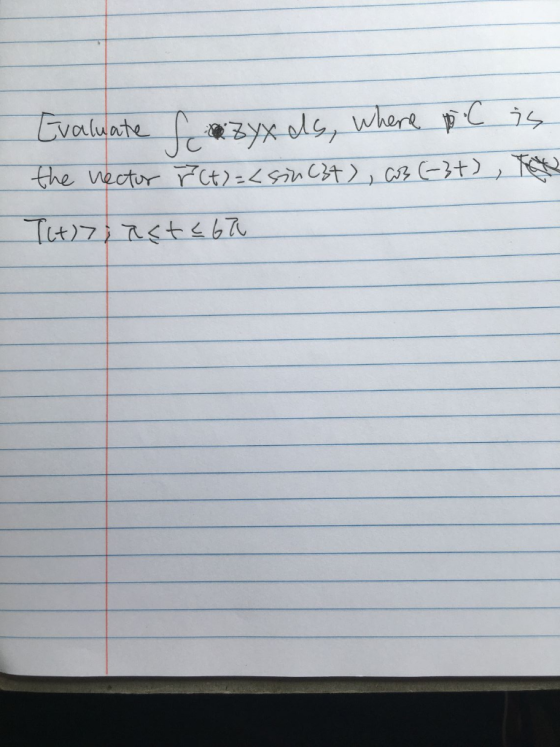 Evaluate ∫_C zyx ds, where C is
the vector r⃗(t)=<sin(3t), cos(-3t),
T(t)>; π≤t≤6π